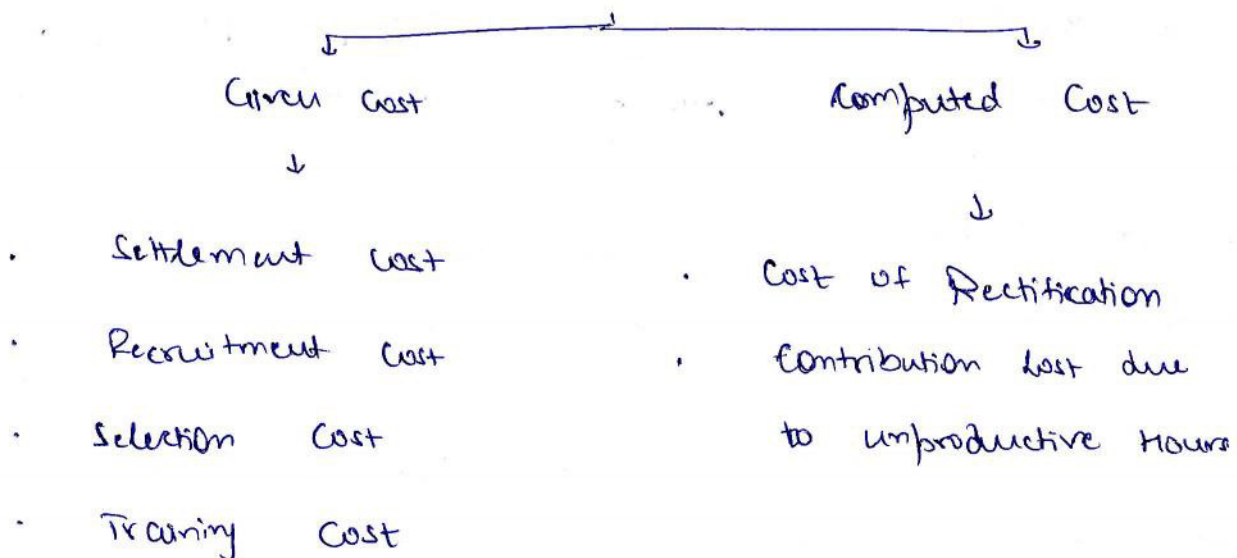 Given Cost
Computed Cost
Settlement Cost
Recruitment Cost
Selection Cost
Training Cost
Cost of Rectification
Contribution Lost due
to unproductive Hours